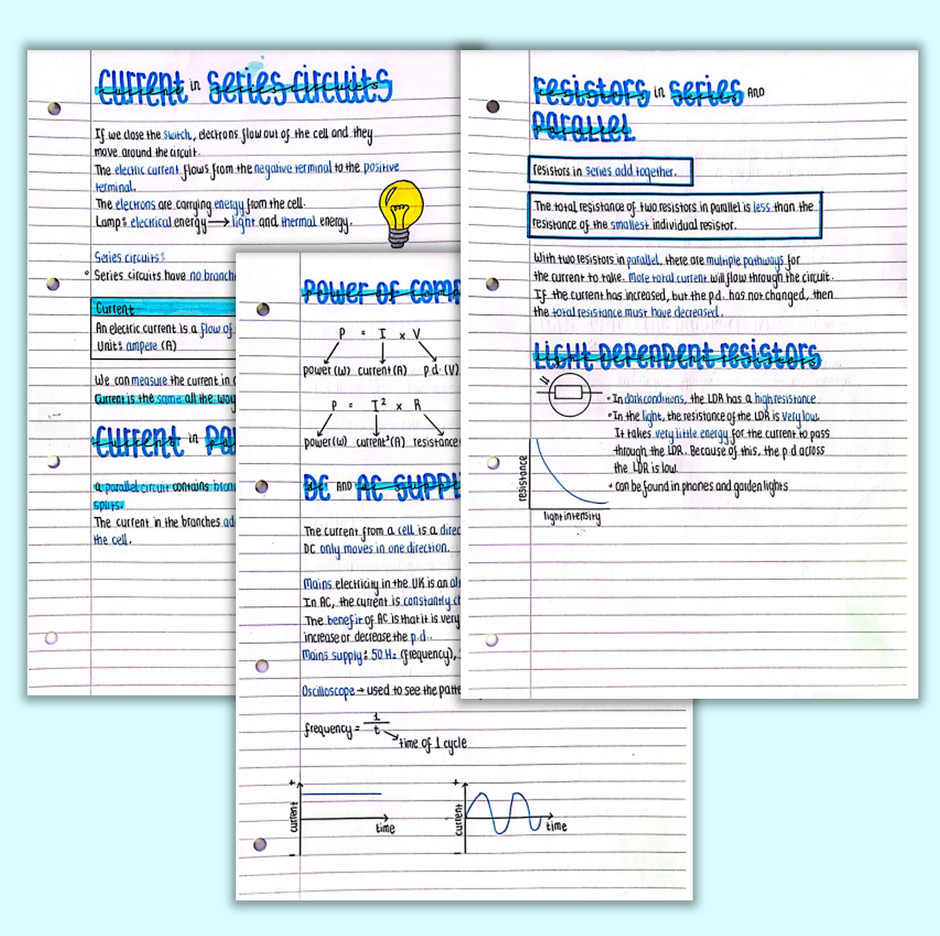 Current in Series circuits
If we close the switch, electrons flow out of the cell and they
move around the circuit.
The electric current flows from the negative terminal to the positive
terminal.
The electrons are carrying energy from the cell.
Lamp: electrical energy → light and thermal energy.
Series circuits:
• Series circuits have no branch
Current
An electric current is a flow of
Unit: ampere (A)
We can measure the current in
Current is the same all the way
Current in Pa
a parallel circuit contains bran
splits.
The current in the branches ad
the cell.
Power of comp
P = I x V
power(w) current(A) p.d.(V)
P = I² x R
power(w) current²(A) resistance
DC AND AC SUPPL
The current from a cell is a direc
DC only moves in one direction.
Mains electricity in the UK is an al
In AC, the current is constantly ch
The benefit of AC is that it is very
increase or decrease the p.d..
Mains supply: 50 Hz (frequency),
Oscilloscope → used to see the patte
frequency = 1
t
time of 1 cycle
+
current
time
-
+
current
time
-
resistors in series AND
PARALLEL
resistors in series add together.
The total resistance of two resistors in parallel is less than the
resistance of the smallest individual resistor.
With two resistors in parallel, there are multiple pathways for
the current to take. More total current will flow through the circuit.
If the current has increased, but the p.d. has not changed, then
the total resistance must have decreased.
LIGHT DEPENDENT resistors
• In dark conditions, the LDR has a high resistance
• In the light, the resistance of the LDR is very low.
It takes very little energy for the current to pass
through the LDR. Because of this, the p.d across
the LDR is low.
• can be found in phones and garden lights
resistance
light intensity